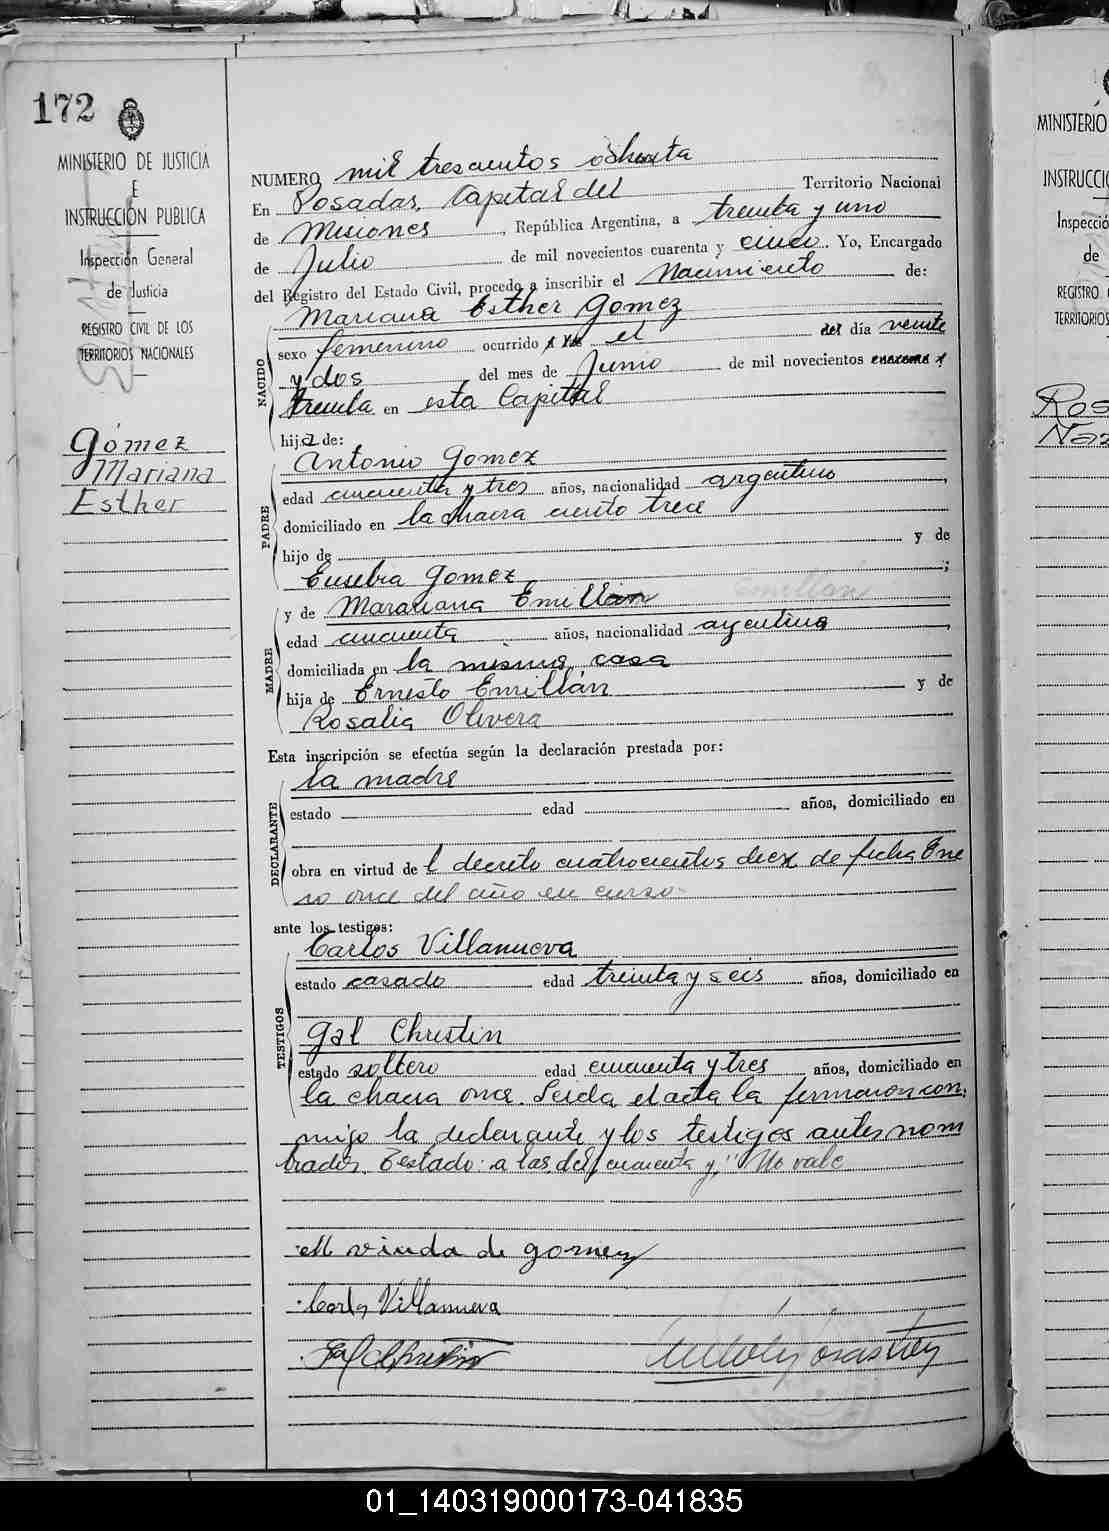 172
MINISTERIO DE JUSTICIA
E
INSTRUCCIÓN PUBLICA
Inspección General
de Justicia
REGISTRO CIVIL DE LOS
TERRITORIOS NACIONALES
Gómez
Mariana
Esther
NUMERO mil trescientos ochenta
En Posadas, Capital del Territorio Nacional
de Misiones, República Argentina, a treinta y uno
de Julio de mil novecientos cuarenta y cinco. Yo, Encargado
del Registro del Estado Civil, procedo a inscribir el Nacimiento de:
NACIDO
Mariana Esther Gomez
sexo femenino ocurrido a las el del día veinte
y dos del mes de Junio de mil novecientos cuarenta y
treinta en esta Capital
hija de:
PADRE
Antonio Gomez
edad cincuenta y tres años, nacionalidad argentino,
domiciliado en la chacra ciento trece
hijo de y de
Eusebia Gomez;
MADRE
y de Marariana Emillán Emillán
edad cincuenta años, nacionalidad argentina,
domiciliada en la misma casa
hija de Ernesto Emillán y de
Rosalia Olivera
Esta inscripción se efectúa según la declaración prestada por:
DECLARANTE
la madre
estado edad años, domiciliado en
obra en virtud de l decreto cuatrocientos diez de fecha Ene
ro once del año en curso.
ante los testigos:
TESTIGOS
Carlos Villanueva
estado casado edad treinta y seis años, domiciliado en
Gal Christin
estado soltero edad cincuenta y tres años, domiciliado en
la chacra once. Leida el acta la firmaron con
migo la declarante y los testigos antes nom
brados. Testado: a las del, cuarenta y, "No vale
M viuda de gomez
Carlos Villanueva
Gal Christin
MINISTERIO
INSTRUCCI
Inspecció
de
REGISTRO
TERRITORIOS
Ros
Naz
01_140319000173-041835